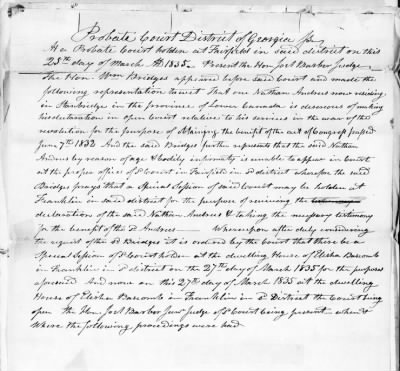 Probate Court District of Georgia ss
At a Probate Court holden at Fairfield in said district on this
25th day of March AD 1835 Present the Hon. Joel Barber Judge
The Hon. Wm Bridges appeared before said Court and made the
following representation to wit That one Nathan Andrus now residing
in Stanbridge in the province of Lower Canada is desirous of making
his declaration in open Court relative to his services in the war of the
revolution for the purpose of obtaining the benefit of the act of Congress passed
June 7th 1832 And the said Bridges further represents that the said Nathan
Andrus by reason of age & bodily infirmity is unable to appear in Court
at the proper office of sd Court in Fairfield in sd district Therefore the said
Bridges prays that a Special Session of said Court may be holden at
Franklin in said district for the purpose of receiving the
declaration of the said Nathan Andrus & taking the necessary testimony
for the benefit of the sd Andrus Whereupon after duly considering
the request of the sd Bridges it is ordered by the Court that there be a
Special Session of sd Court holden at the dwelling House of Elisha Bascomb
in Franklin in sd district on the 27th day of March 1835 for the purposes
aforesaid And now on this 27th day of March 1835 at the dwelling
House of Elisha Bascomb in Franklin in sd District the Court being
open the Hon. Joel Barber Junr Judge of sd Court being present
Where the following proceedings were had